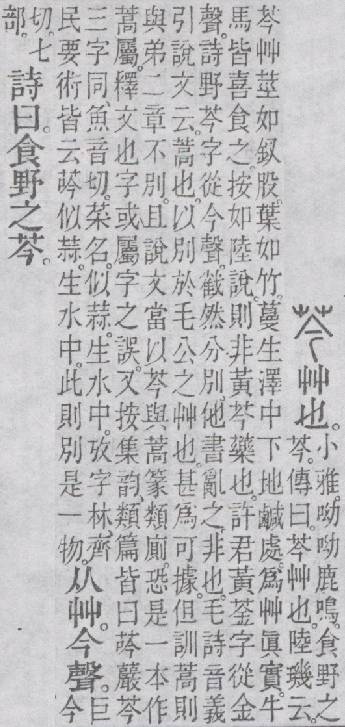 芩艸也。
小雅。呦呦鹿鳴。食野之
芩。傳曰。芩艸也。陸璣云。
芩艸莖如釵股。葉如竹。蔓生澤中下地鹹處。爲艸眞實。牛
馬皆喜食之。按如陸說。則非黃芩藥也。許君黃莶字從金
聲。詩野芩字從今聲。截然分別。他書亂之。非也。毛詩音義
引說文云。蒿也。以別於毛公之艸也。甚爲可據。但訓蒿則
與弟二章不別。且說文當以芩與蒿篆類廁。恐是一本作
蒿屬。釋文也字或屬字之誤。又按集韵類篇皆曰荶芩
三字同。魚音切。菜名。似蒜。生水中。攷字林。齊
民要術皆云荶似蒜。生水中。此則別是一物。
从艸。今聲。
巨
今
切。七
部。
詩曰。食野之芩。